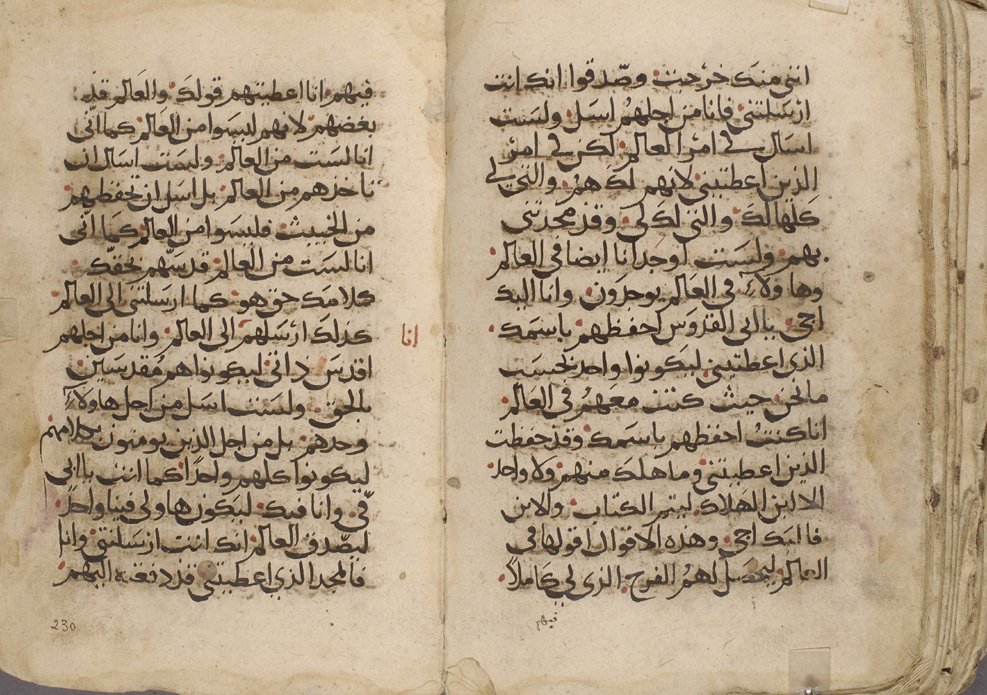 انني منك خرجت وصدقوا انك انت
ارسلتني فانا من اجلهم اسل ولست
اسال في امر العالم لكن في امر
الذين اعطيتني لانهم لك هم والتي لي
كلها لك والتي لك لي وقد مجدتني
بهم ولست اوجد انا ايضا في العالم
وهاولاء في العالم يوجدون وانا اليك
اجي يا ابي القدوس احفظهم باسمك
الذي اعطيتني ليكونوا واحد بحسب
ما نحن حيث كنت معهم في العالم
انا كنت احفظهم باسمك وقد حفظت
الذين اعطيتني وما هلك منهم ولا واحد
الا ابن الهلاك ليتم الكتاب والان
فاليك اجي وهذه الاقوال اقولها في
العالم ليحصل لهم الفرح الذي لي كاملا
فيهم
فيهم انا اعطيتهم قولك والعالم قد
بغضهم لانهم ليسوا من العالم كما انى
انا لست من العالم ولست اسال ان
تاخذهم من العالم بل اسل ان تحفظهم
من الخبيث فليسوا من العالم كما انى
انا لست من العالم قدسهم بحقك
كلامك حق هو كما ارسلتني الى العالم
كذلك ارسلهم الى العالم وانا من اجلهم
انا
اقدس ذاتى ليكونوا هم مقدسين
بالحق ولست اسل من اجل هاولاء
وحدهم بل من اجل الذين يومنون بكلامهم
ليكونوا كلهم واحدا كما انت يا ابي
فيّ وانا فيك ليكون هاولى فينا واحد
ليصدق العالم انك انت ارسلتني وانا
فالمجد الذي اعطيتني قد دفعته اليهم
230